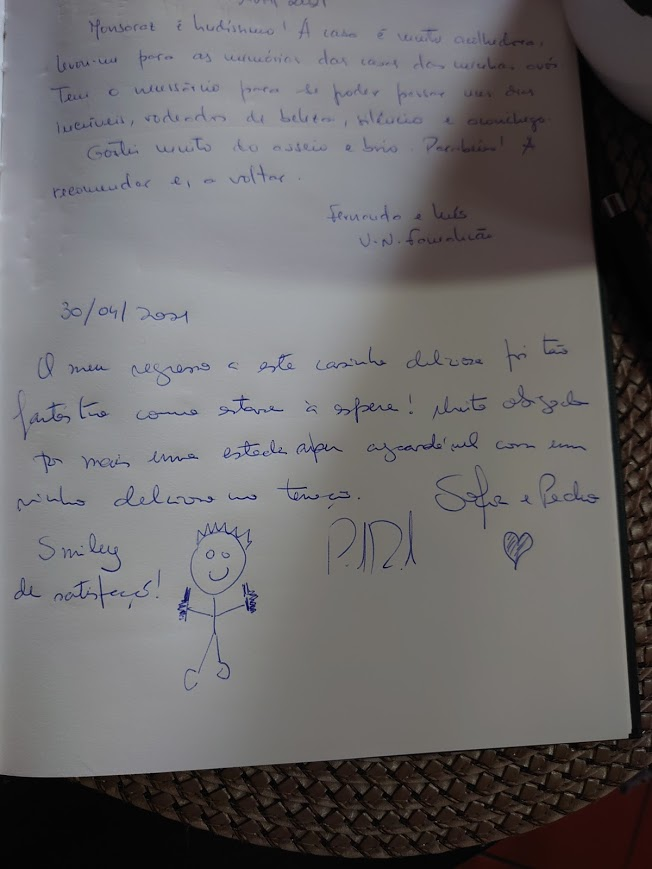 Monsaraz é lindíssimo! A casa é muito acolhedora,
levou-me para as memórias das casas das minhas avós
Tem o necessário para se poder passar uns dias
incríveis, rodeados de beleza, silêncio e aconchego.
Gostei muito do asseio e brio. Parabéns! A
recomendar e, a voltar.
Fernanda e Luís
V. N. Famalicão
30/04/2021
O meu regresso a esta casinha deliciosa foi tão
fantástico como estava à espera! Muito obrigada
por mais uma estada agradável com um
vinho delicioso no terraço. Sofia e Pedro
Smiley
de satisfação!